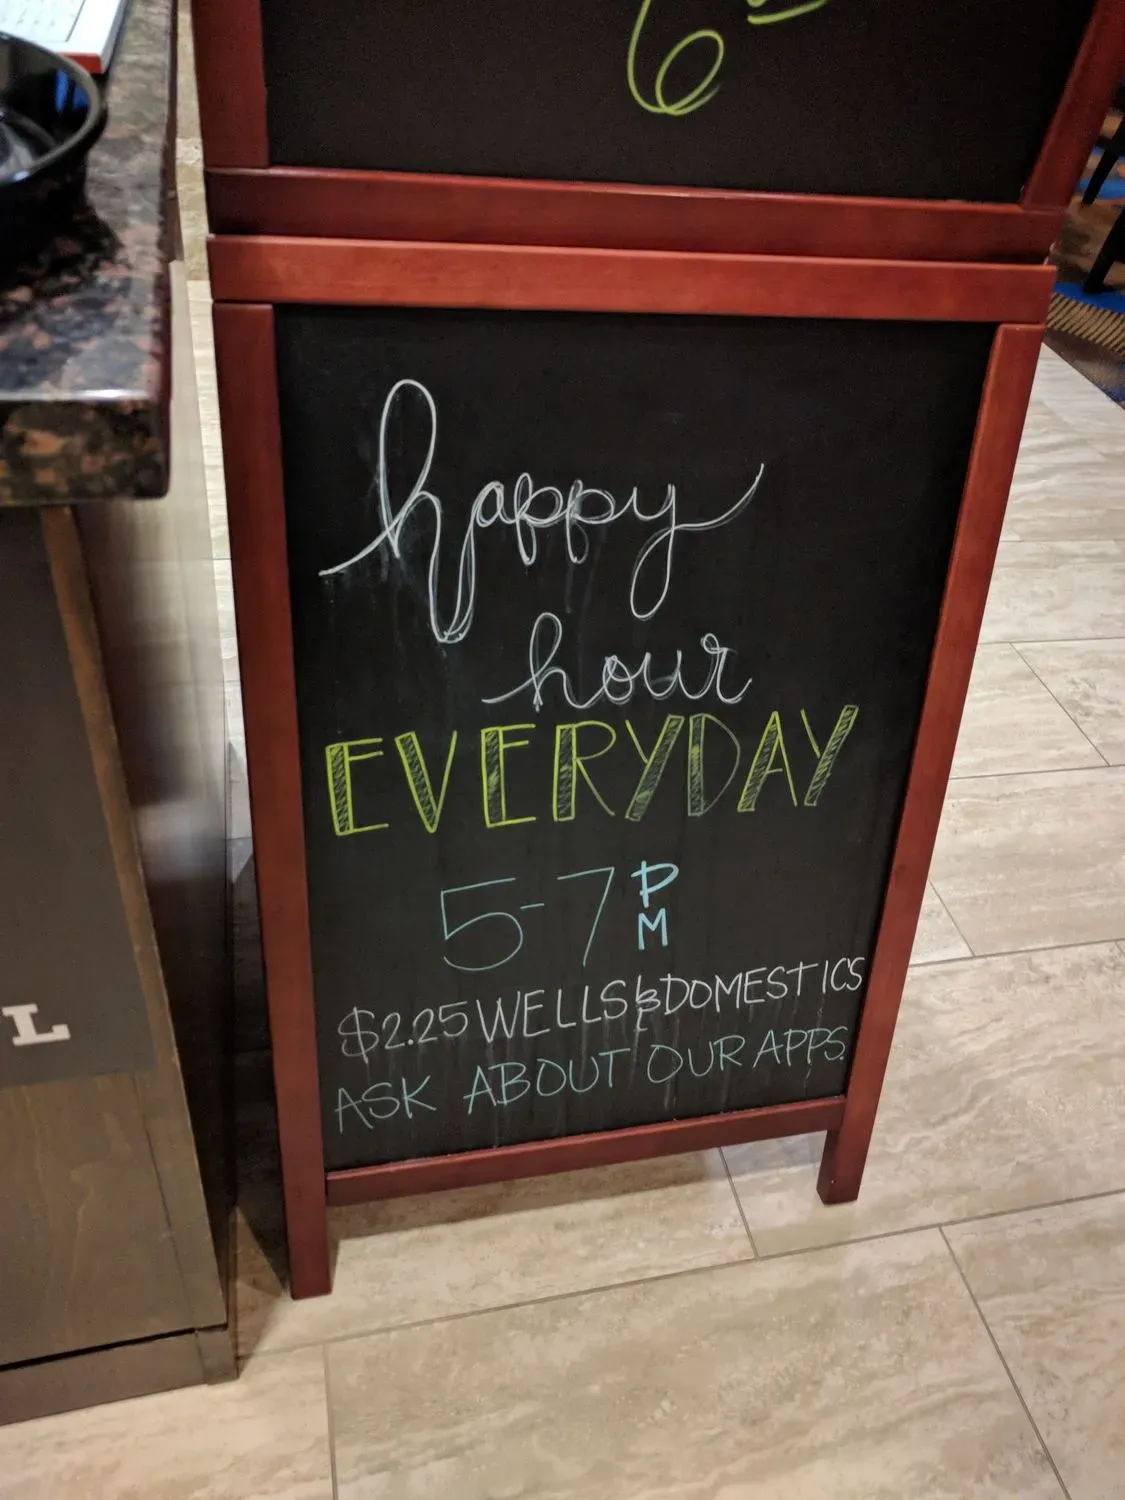 6
happy
hour
EVERYDAY
5-7 PM
$2.25 WELLS & DOMESTICS
ASK ABOUT OUR APPS.
L